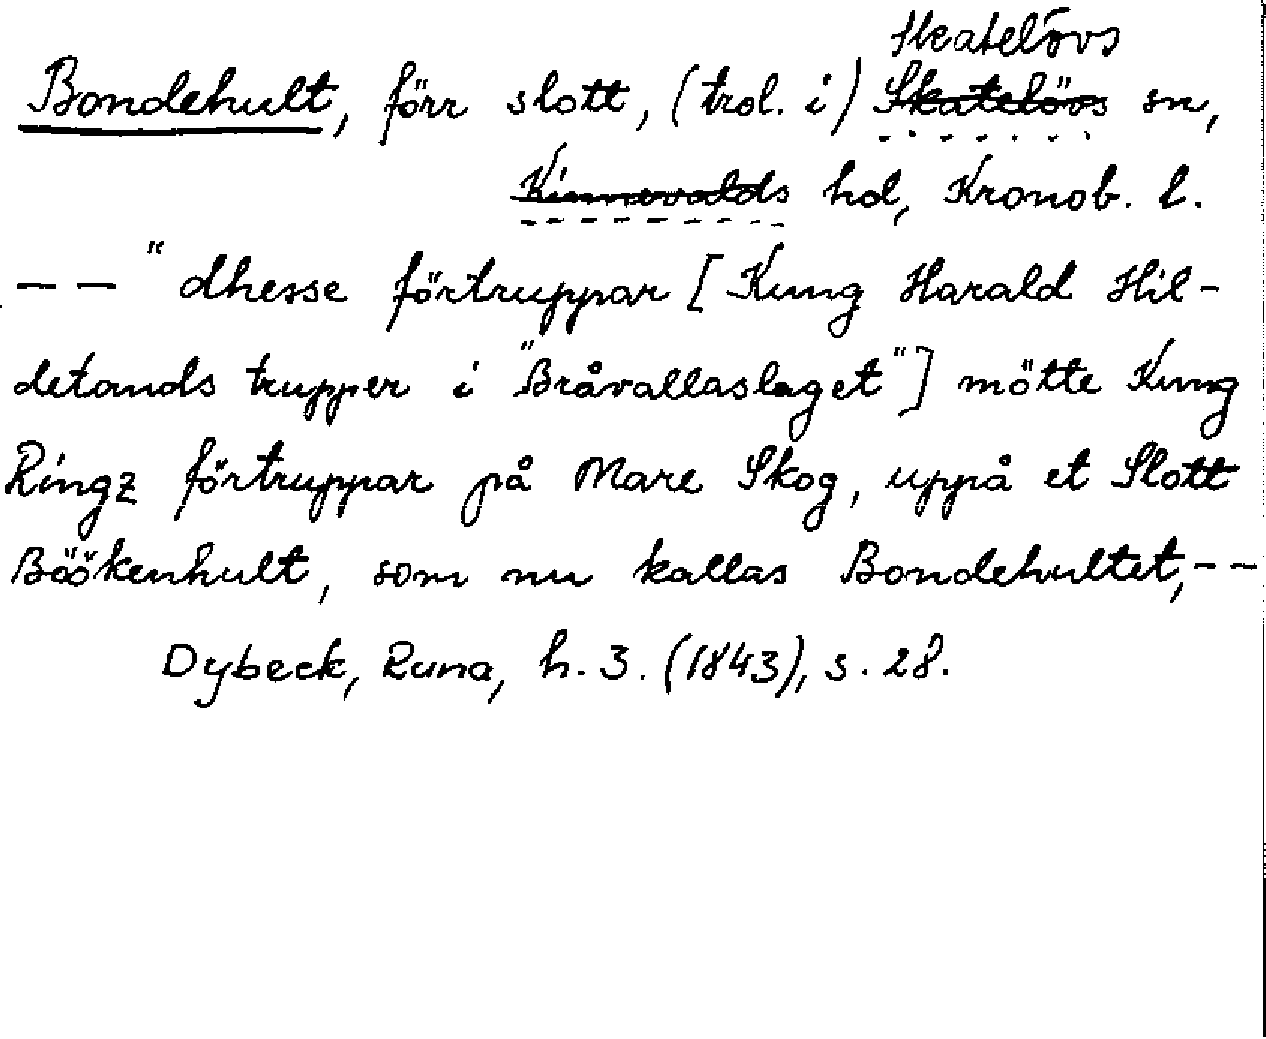 Skatelövs
Bondehult, förr slott, (trol. i) Skatelövs sn,
Kinnevalds hd, Kronob. l.
— — "dhesse förtruppar [Kung Harald Hil-
detands trupper i "Bråvallaslaget"] mötte Kung
Ringz förtruppar på Mare Skog, uppå et Slott
Böökenhult, som nu kallas Bondehultet, – –
Dybeck, Runa, h. 3. (1843), s. 28.